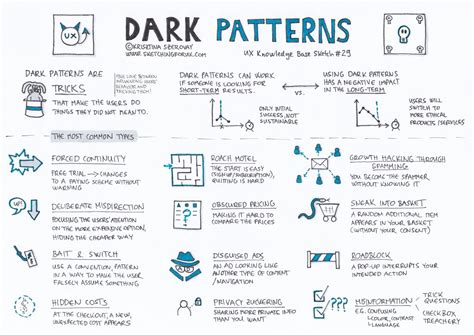 DARK PATTERNS
UX
©KRISZTINA SZEROVAY
WWW.SKETCHINGFORUX.COM
UX KNOWLEDGE BASE SKETCH #29
DARK PATTERNS ARE
TRICKS
THAT MAKE THE USERS DO
THINGS THEY DID NOT MEAN TO.
THE LINE BETWEEN
INFLUENCING USERS'
BEHAVIOR AND
TRICKING THEM!
DARK PATTERNS CAN WORK
IF SOMEONE IS LOOKING FOR
SHORT-TERM RESULTS.
ONLY INITIAL
SUCCESS, NOT
SUSTAINABLE
VS.
USING DARK PATTERNS
HAS A NEGATIVE IMPACT
IN THE LONG-TERM
USERS WILL
SWITCH TO
MORE ETHICAL
PRODUCTS/SERVICES
THE MOST COMMON TYPES
FORCED CONTINUITY
FREE TRIAL → CHANGES
TO A PAYING SCHEME WITHOUT
WARNING
ROACH MOTEL
THE START IS EASY
(SIGNUP/SUBSCRIPTION),
QUITTING IS HARD
GROWTH HACKING THROUGH
SPAMMING
YOU BECOME THE SPAMMER
WITHOUT KNOWING IT
UP!
DOWN!
DELIBERATE MISDIRECTION
FOCUSING THE USERS' ATTENTION
ON THE MORE EXPENSIVE OPTION,
HIDING THE CHEAPER WAY
OBSCURED PRICING
MAKING IT HARD TO
COMPARE THE PRICES
SNEAK INTO BASKET
A RANDOM ADDITIONAL ITEM
APPEARS IN YOUR BASKET
(WITHOUT YOUR CONSENT)
BAIT & SWITCH
USE A CONVENTION, PATTERN
IN A WAY TO MAKE THE USER
FALSELY ASSUME SOMETHING
DISGUISED ADS
AN AD LOOKING LIKE
ANOTHER TYPE OF CONTENT
/ NAVIGATION
ROADBLOCK
A POP-UP INTERRUPTS YOUR
INTENDED ACTION
$
HIDDEN COSTS
AT THE CHECKOUT, A NEW,
UNEXPECTED COST APPEARS
PRIVACY ZUCKERING
SHARING MORE PRIVATE INFO
THAN YOU WANT
???
MISINFORMATION
E.G. CONFUSING
COLOR, CONTRAST
LANGUAGE
TRICK
QUESTIONS
CHECKBOX
TREACHERY